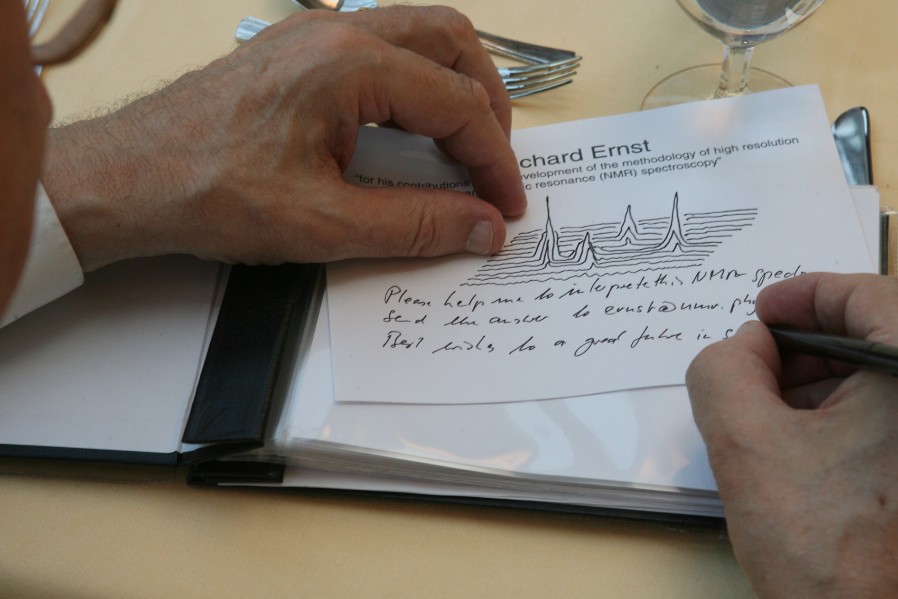 chard Ernst
"for his contributions development of the methodology of high resolution
ic resonance (NMR) spectroscopy"
Please help me to interprete this NMR spectr
Send the answer to ernst@nmr.phy
Best wishes to a great future in s